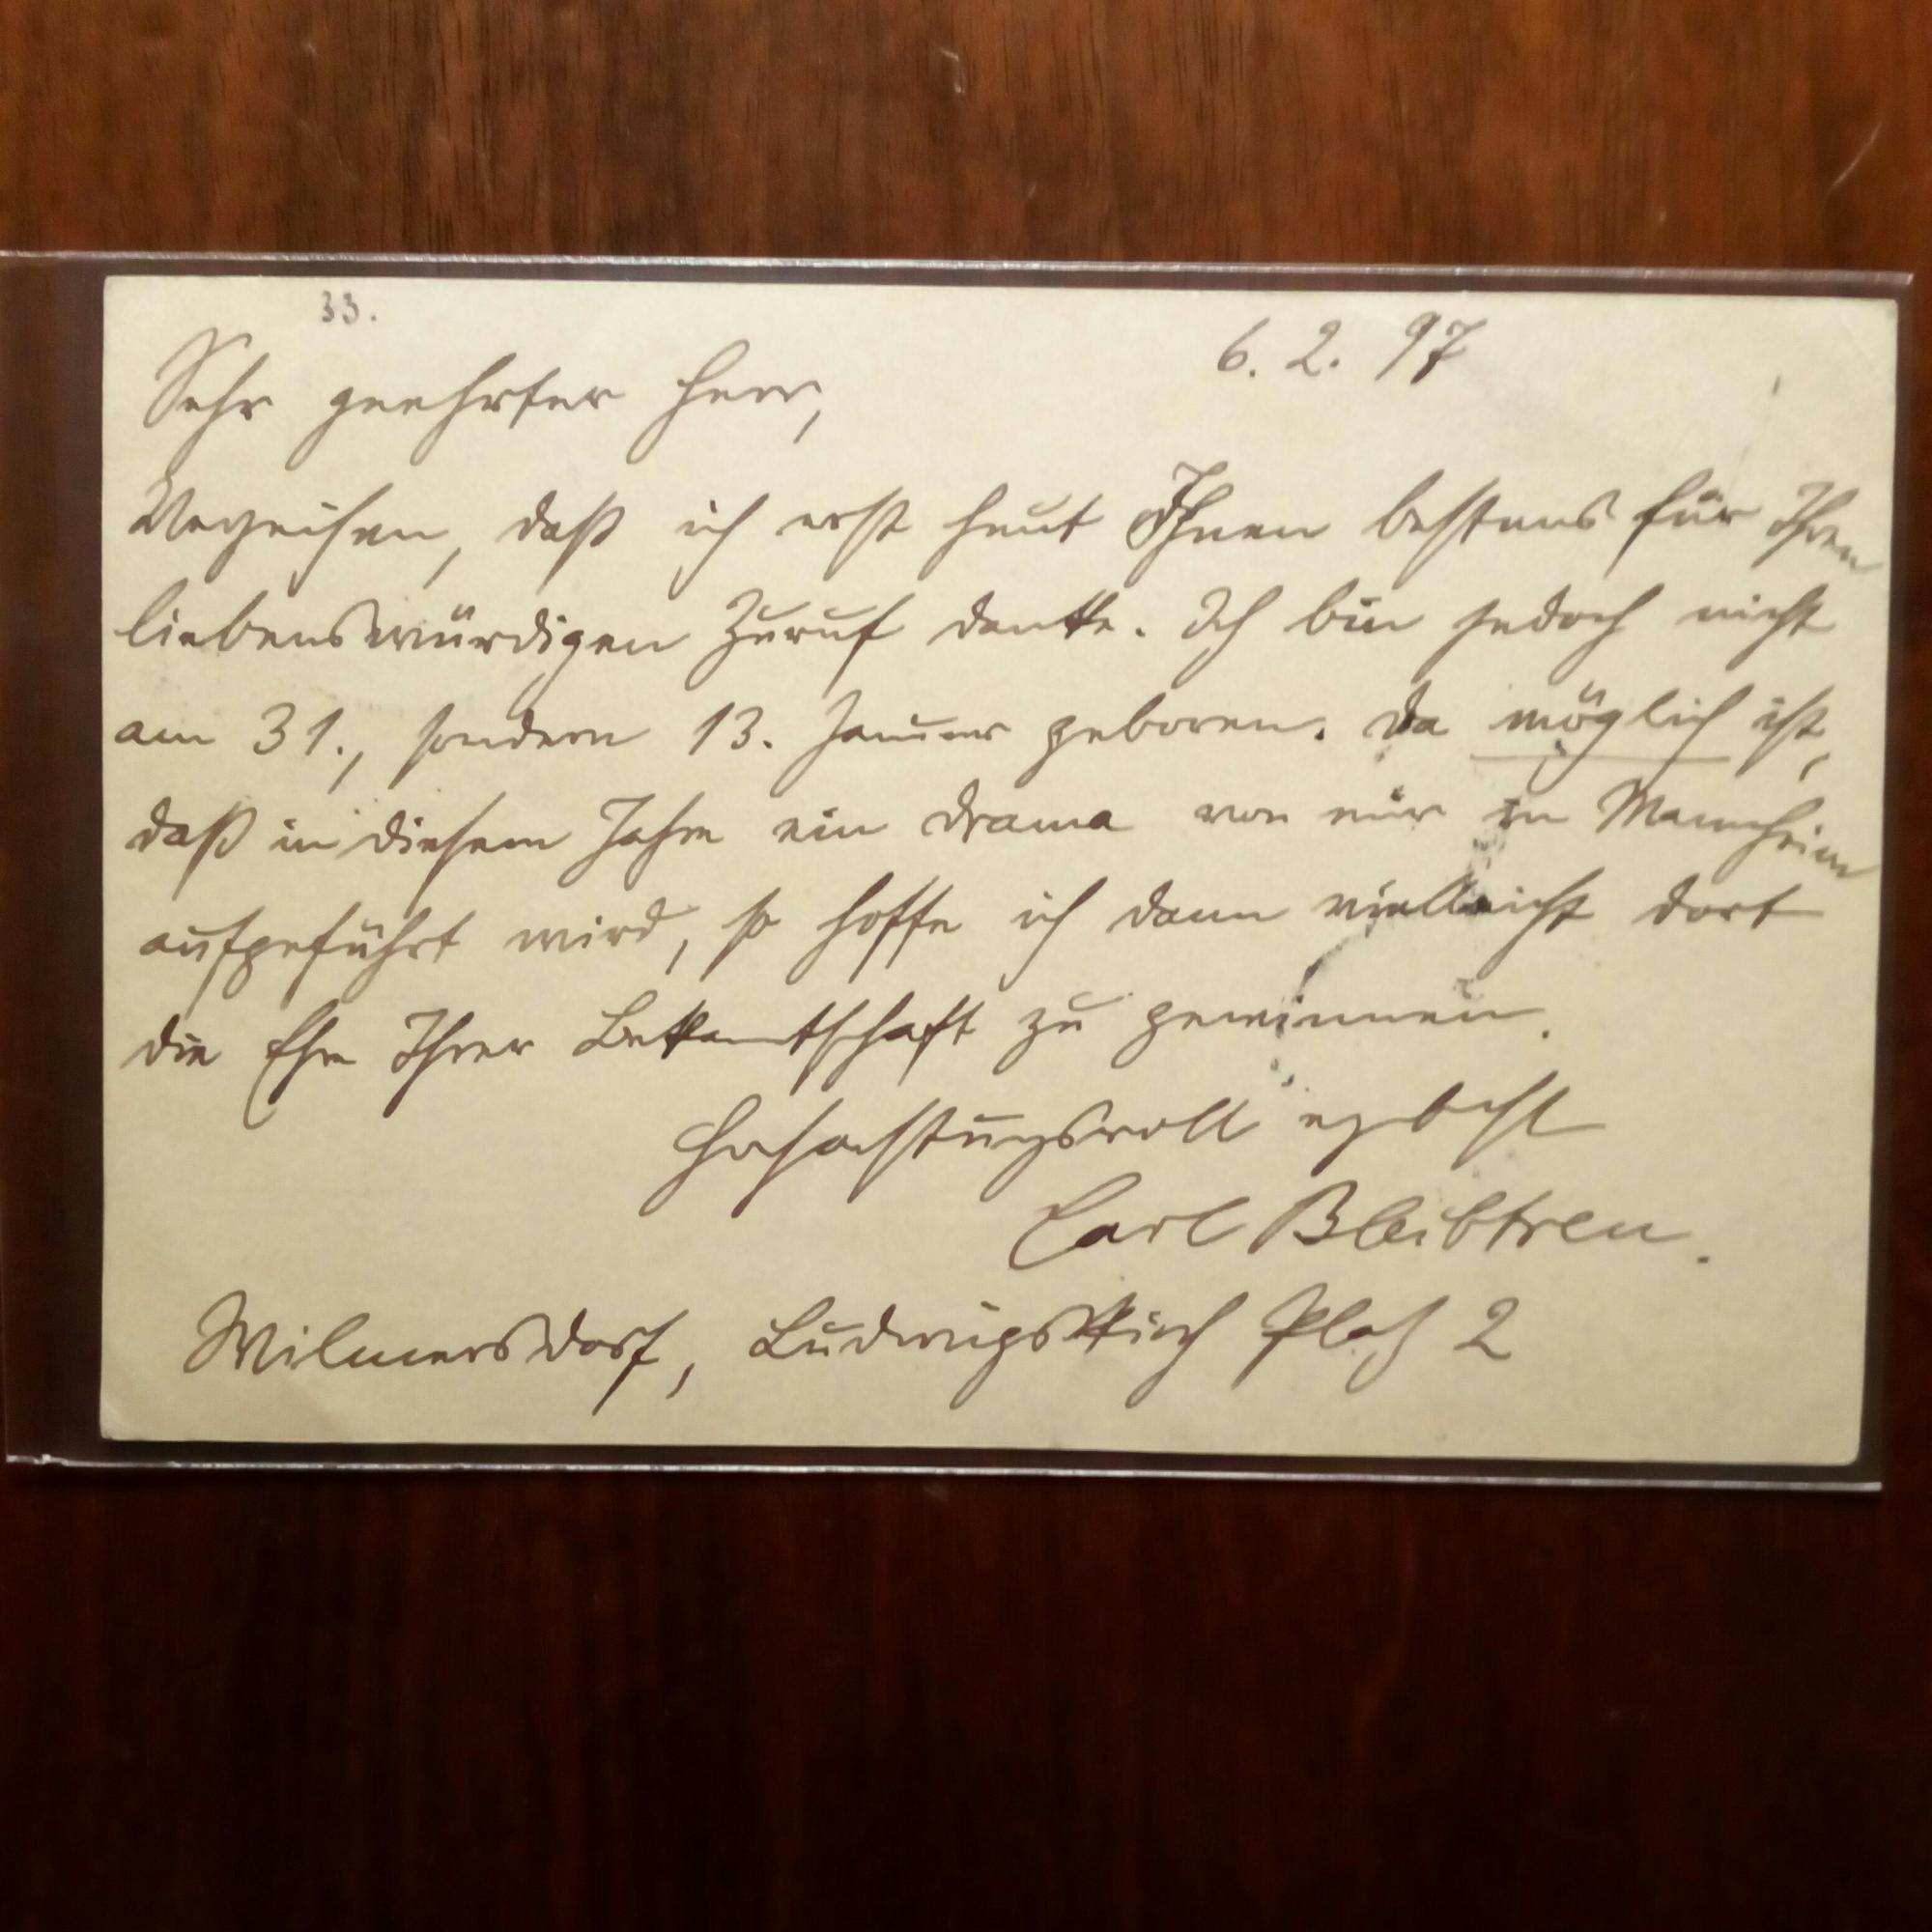 33.
6. 2. 97
Sehr geehrter Herr,
Verzeihen, daß ich erst heut Ihnen bestens für Ihren
liebenswürdigen Zuruf danke. Ich bin jedoch nicht
am 31., sondern 13. Januar geboren. Da möglich ist,
daß in diesem Jahre ein Drama von mir in Mannheim
aufgeführt wird, so hoffe ich dann vielleicht dort
die Ehre Ihrer Bekanntschaft zu gewinnen.
Hochachtungsvoll
Carl Bleibtreu.
Wilmersdorf, Ludwigskirch Platz 2